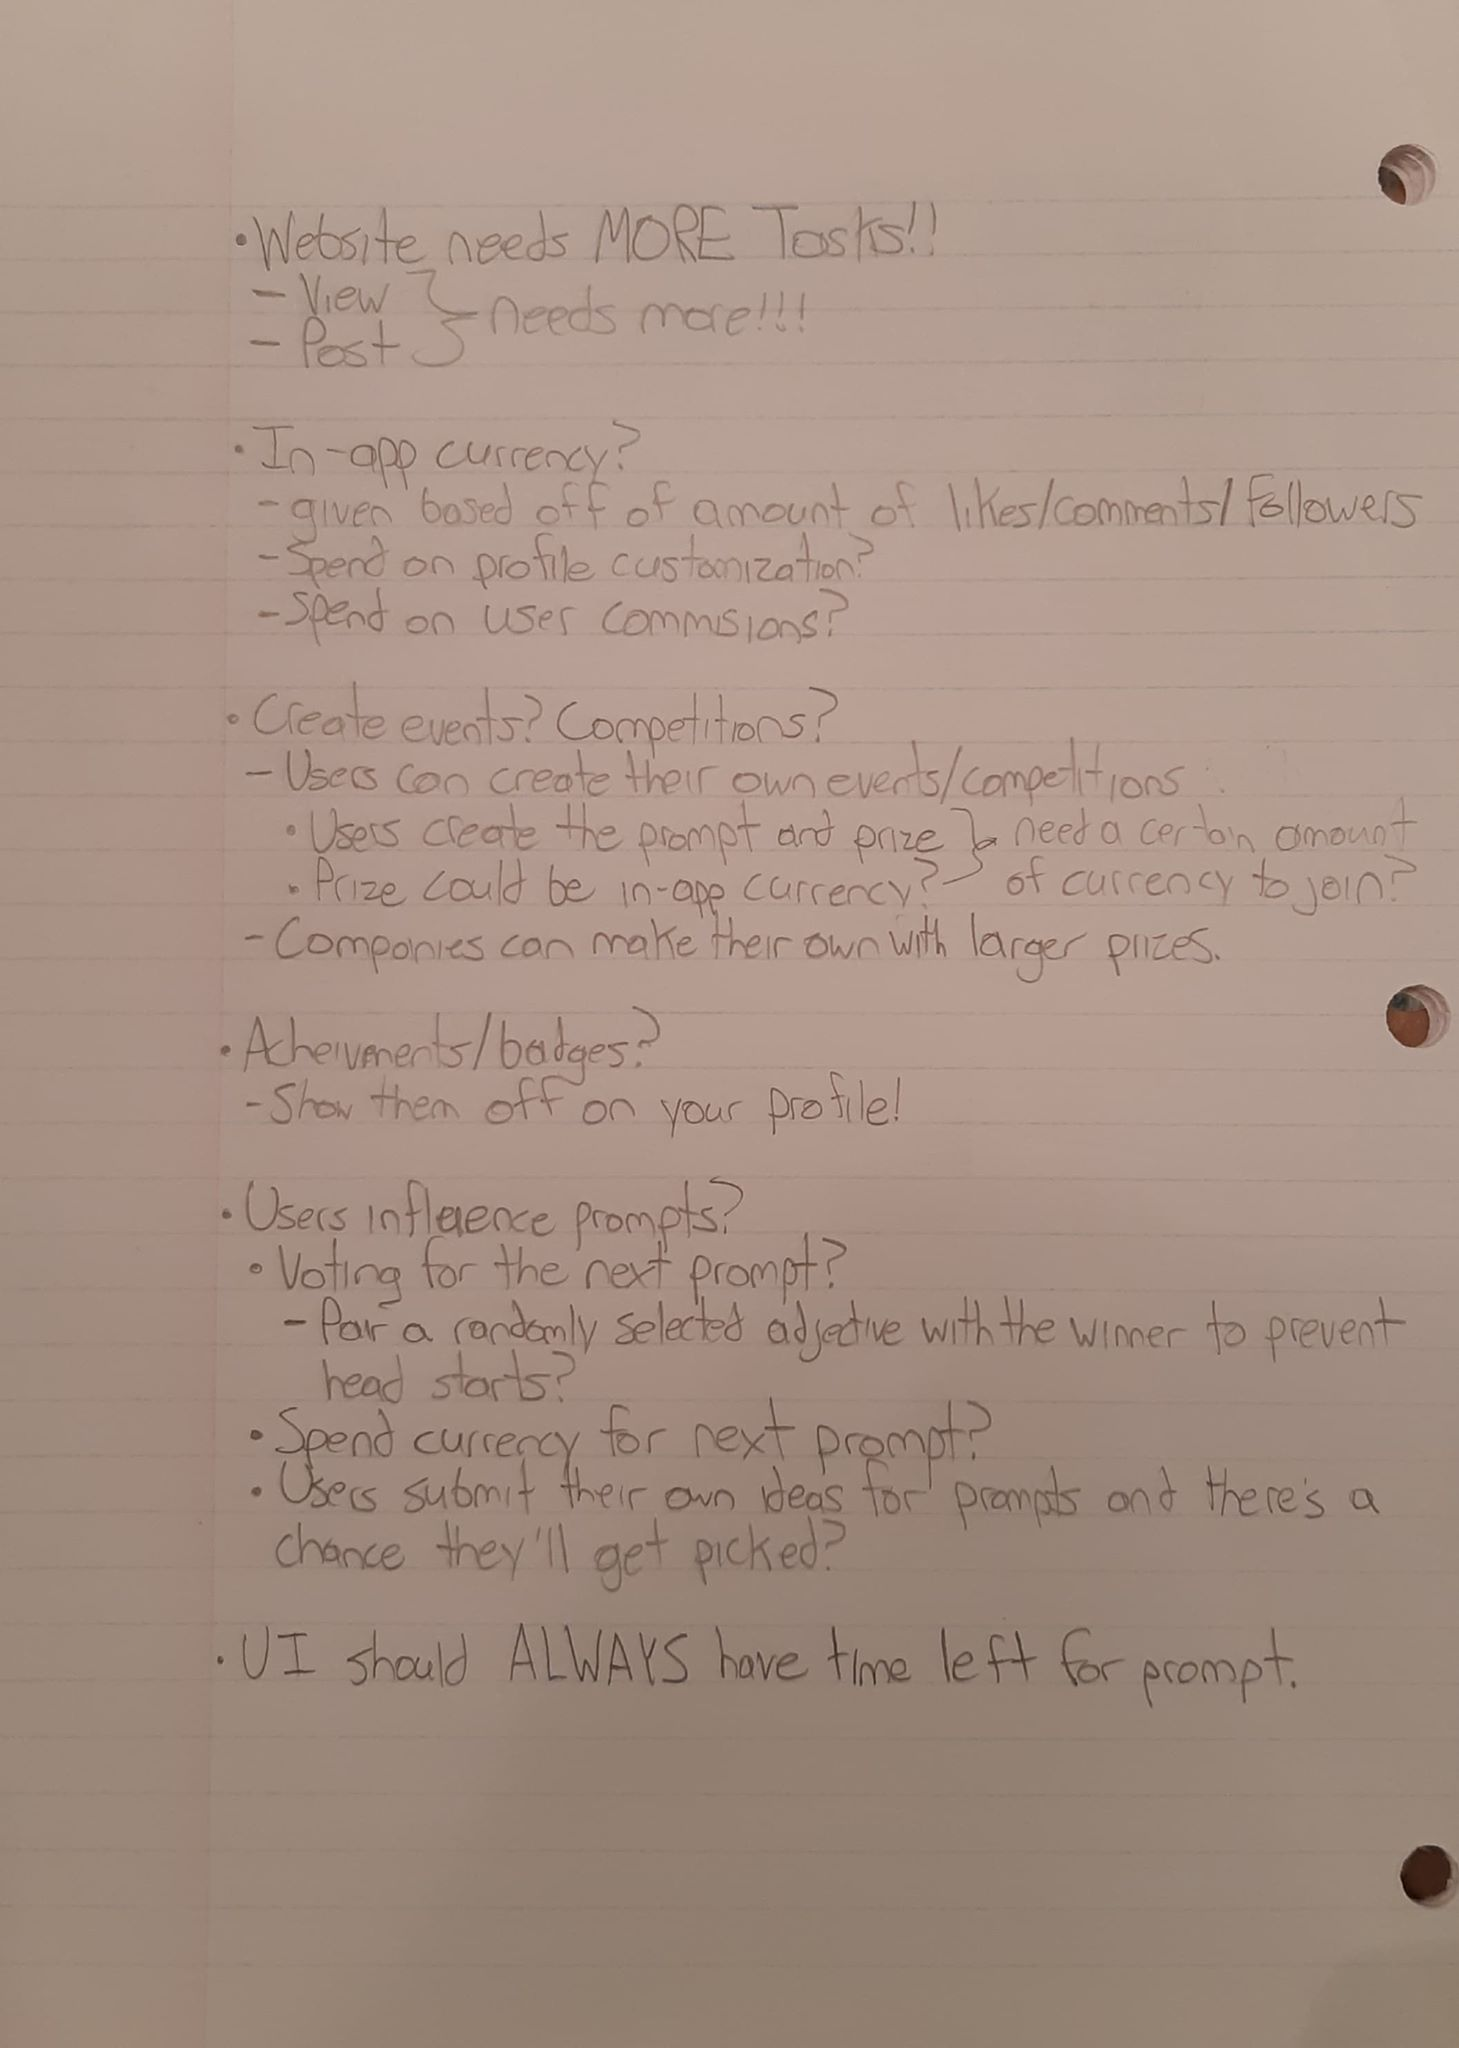 • Website needs MORE Tasks!!
- View } needs more!!!
- Post
• In-app currency?
- given based off of amount of likes/comments/followers
- Spend on profile customization?
- Spend on user commisions?
• Create events? Competitions?
- Users can create their own events/competitions
• Users create the prompt and prize } need a certain amount
• Prize could be in-app currency? of currency to join?
- Companies can make their own with larger prizes.
• Acheivments/badges?
- Show them off on your profile!
• Users influence prompts?
• Voting for the next prompt?
- Pair a randomly selected adjective with the winner to prevent
head starts?
• Spend currency for next prompt?
• Users submit their own ideas for prompts and there's a
chance they'll get picked?
• UI should ALWAYS have time left for prompt.